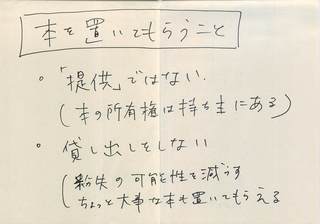 本を置いてもらうこと
・「提供」ではない.
(本の所有権は持ち主にある)
・貸し出しをしない
(紛失の可能を性を減らす
ちょっと大事な本も置いてもらえる